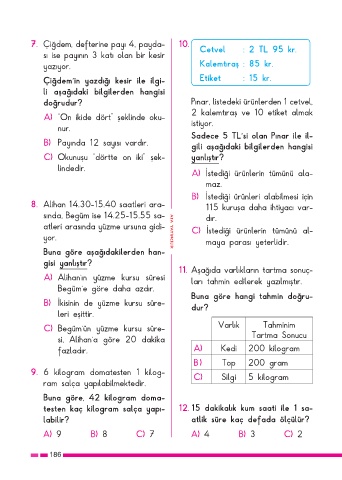 7. Çiğdem, defterine payı 4, payda-
sı ise payının 3 katı olan bir kesir
yazıyor.
Çiğdem'in yazdığı kesir ile ilgi-
li aşağıdaki bilgilerden hangisi
doğrudur?
A) "On ikide dört" şeklinde oku-
nur.
B) Payında 12 sayısı vardır.
C) Okunuşu "dörtte on iki" şek-
lindedir.
8. Alihan 14.30-15.40 saatleri ara-
sında, Begüm ise 14.25-15.55 sa-
atleri arasında yüzme kursuna gidi-
yor.
Buna göre aşağıdakilerden han-
gisi yanlıştır?
A) Alihan'ın yüzme kursu süresi
Begüm'e göre daha azdır.
B) İkisinin de yüzme kursu süre-
leri eşittir.
C) Begüm'ün yüzme kursu süre-
si, Alihan'a göre 20 dakika
fazladır.
9. 6 kilogram domatesten 1 kilog-
ram salça yapılabilmektedir.
Buna göre, 42 kilogram doma-
testen kaç kilogram salça yapı-
labilir?
A) 9 B) 8 C) 7
10.
Cetvel : 2 TL 95 kr.
Kalemtıraş : 85 kr.
Etiket : 15 kr.
Pınar, listedeki ürünlerden 1 cetvel,
2 kalemtıraş ve 10 etiket almak
istiyor.
Sadece 5 TL'si olan Pınar ile il-
gili aşağıdaki bilgilerden hangisi
yanlıştır?
A) İstediği ürünlerin tümünü ala-
maz.
B) İstediği ürünleri alabilmesi için
115 kuruşa daha ihtiyacı var-
dır.
C) İstediği ürünlerin tümünü al-
maya parası yeterlidir.
11. Aşağıda varlıkların tartma sonuç-
ları tahmin edilerek yazılmıştır.
Buna göre hangi tahmin doğru-
dur?
Varlık Tahminim
Tartma Sonucu
A) Kedi 200 kilogram
B) Top 200 gram
C) Silgi 5 kilogram
12. 15 dakikalık kum saati ile 1 sa-
atlik süre kaç defada ölçülür?
A) 4 B) 3 C) 2
186